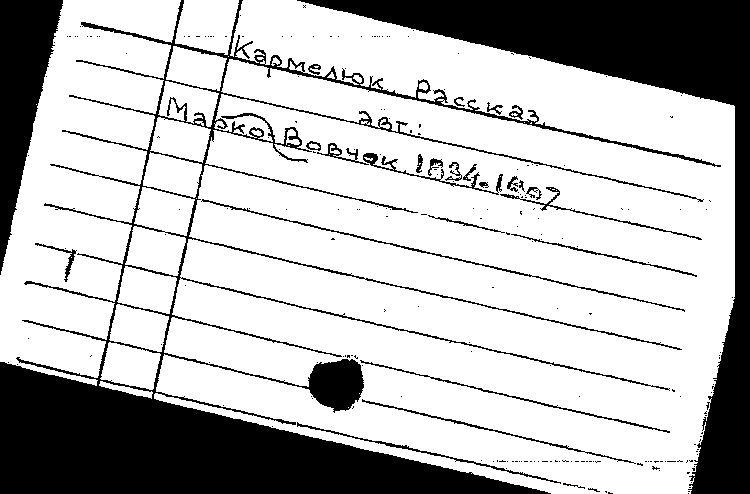 Кармелюк. Рассказ.
авт.:
Марко Вовчок 1834-1907
1